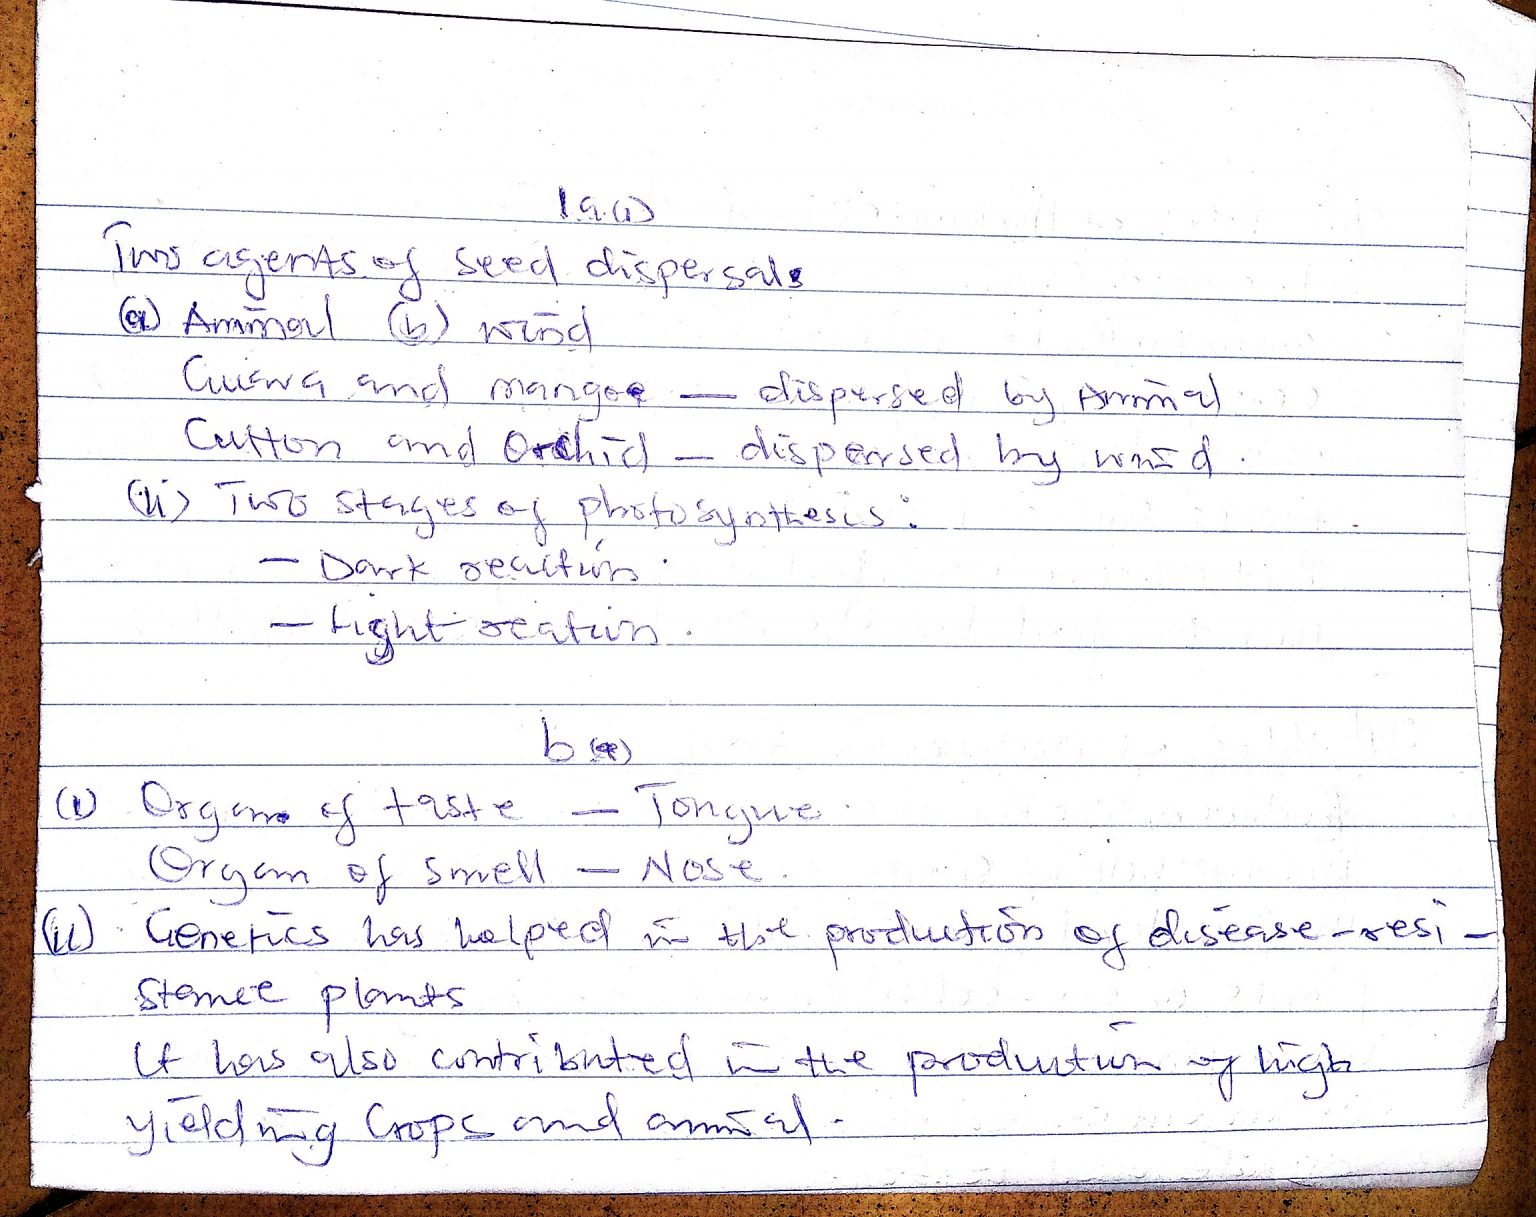 1a.(i)
Two agents of seed dispersal.
(a) Animal (b) wind
Guava and mangoe — dispersed by Animal
Cutton and Orchid — dispersed by wind.
(ii) Two stages of photosynthesis:
— Dark reaction.
— Light reation.
b
(i) Organ of taste — Tongue.
Organ of smell — Nose.
(ii). Genetics has helped in the production of disease-resi-
stance plants
It has also contributed in the production of high
yielding Crops and animal.